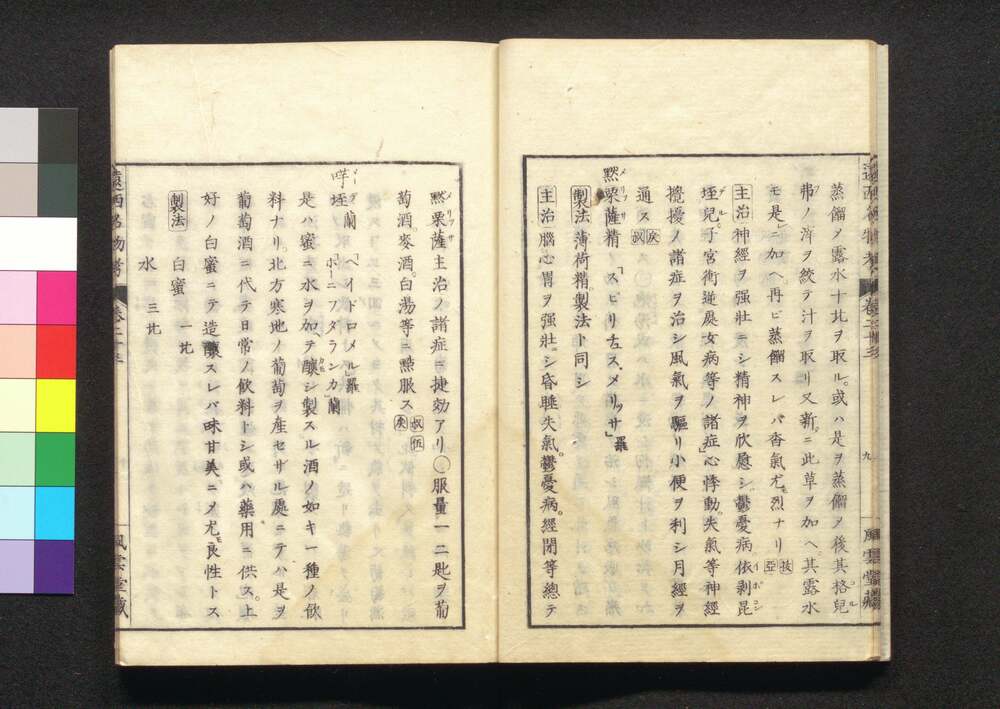 蒸餾メ露水十比ヲ取ル。或ハ是ヲ蒸餾ノ後其格兒
弗ノ滓ヲ絞テ汁ヲ取リ又新ニ此草ヲ加ヘ其露水
モ是ニ加ヘ再ビ蒸餾スレバ香氣尤烈ナリ
主治 神經ヲ强壯ニシ精神ヲ欣慰シ鬱憂病依剥昆
垤兒。子宮衝逆婦女病等ノ諸症心悸動。失氣等神經
攪擾ノ諸症ヲ治シ風氣ヲ驅リ小便ヲ利シ月經ヲ
通ス
黙栗薩精 「スピリチュス、メリッサ」羅
製法 薄荷精製法ト同シ
主治 腦心胃ヲ强壯シ昏睡失氣。鬱憂病。經閉等總テ
九
風雲堂藏
黙栗薩主治ノ諸症ニ捷効アリ〇服量一二匙ヲ葡
萄酒。麥酒。白湯等ニ黙服ス
蘭 「ヘイドロメル」羅 「ホーニフダランカ」蘭
是ハ蜜ニ水ヲ加テ釀シ製スル酒ノ如キ一種ノ飲
料ナリ。北方寒地ノ葡萄ヲ産セザル處ニテハ是ヲ
葡萄酒ニ代テ日常ノ飲料トシ或ハ藥用ニ供ス。上
好ノ白蜜ニテ造釀スレバ味甘美ニメ尤良性トス
製法 白蜜 一比
水 三比
遠西名物考 卷二十三
風雲堂藏